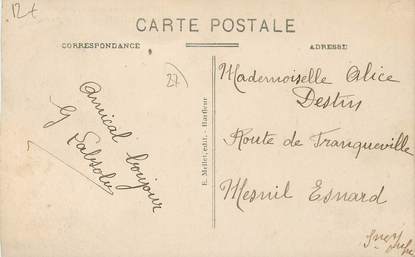 12+
CARTE POSTALE
CORRESPONDANCE
ADRESSE
27
Amical bonjour
G
E. Mellet, édit. - Harfleur
Mademoiselle Alice
Destin
Route de Franqueville
Mesnil Esnard